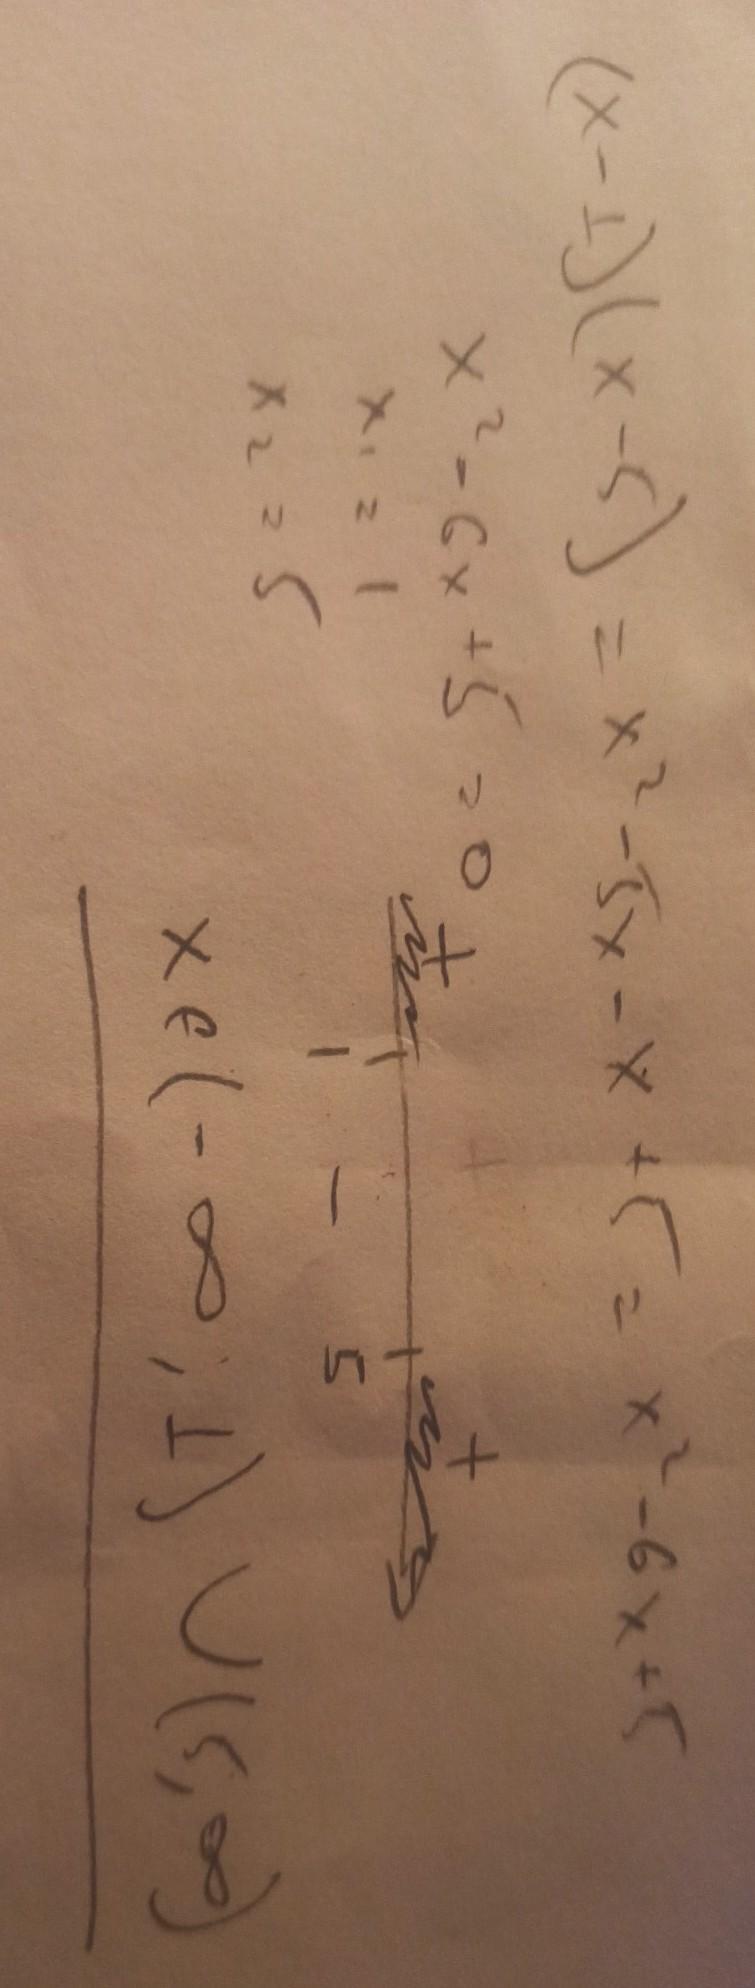 (x-1)(x-5) = x²-5x-x+5 = x²-6x+5
x²-6x+5=0
x₁=1
x₂=5
+ - +
1 5
x∈(-∞;1)∪(5,∞)